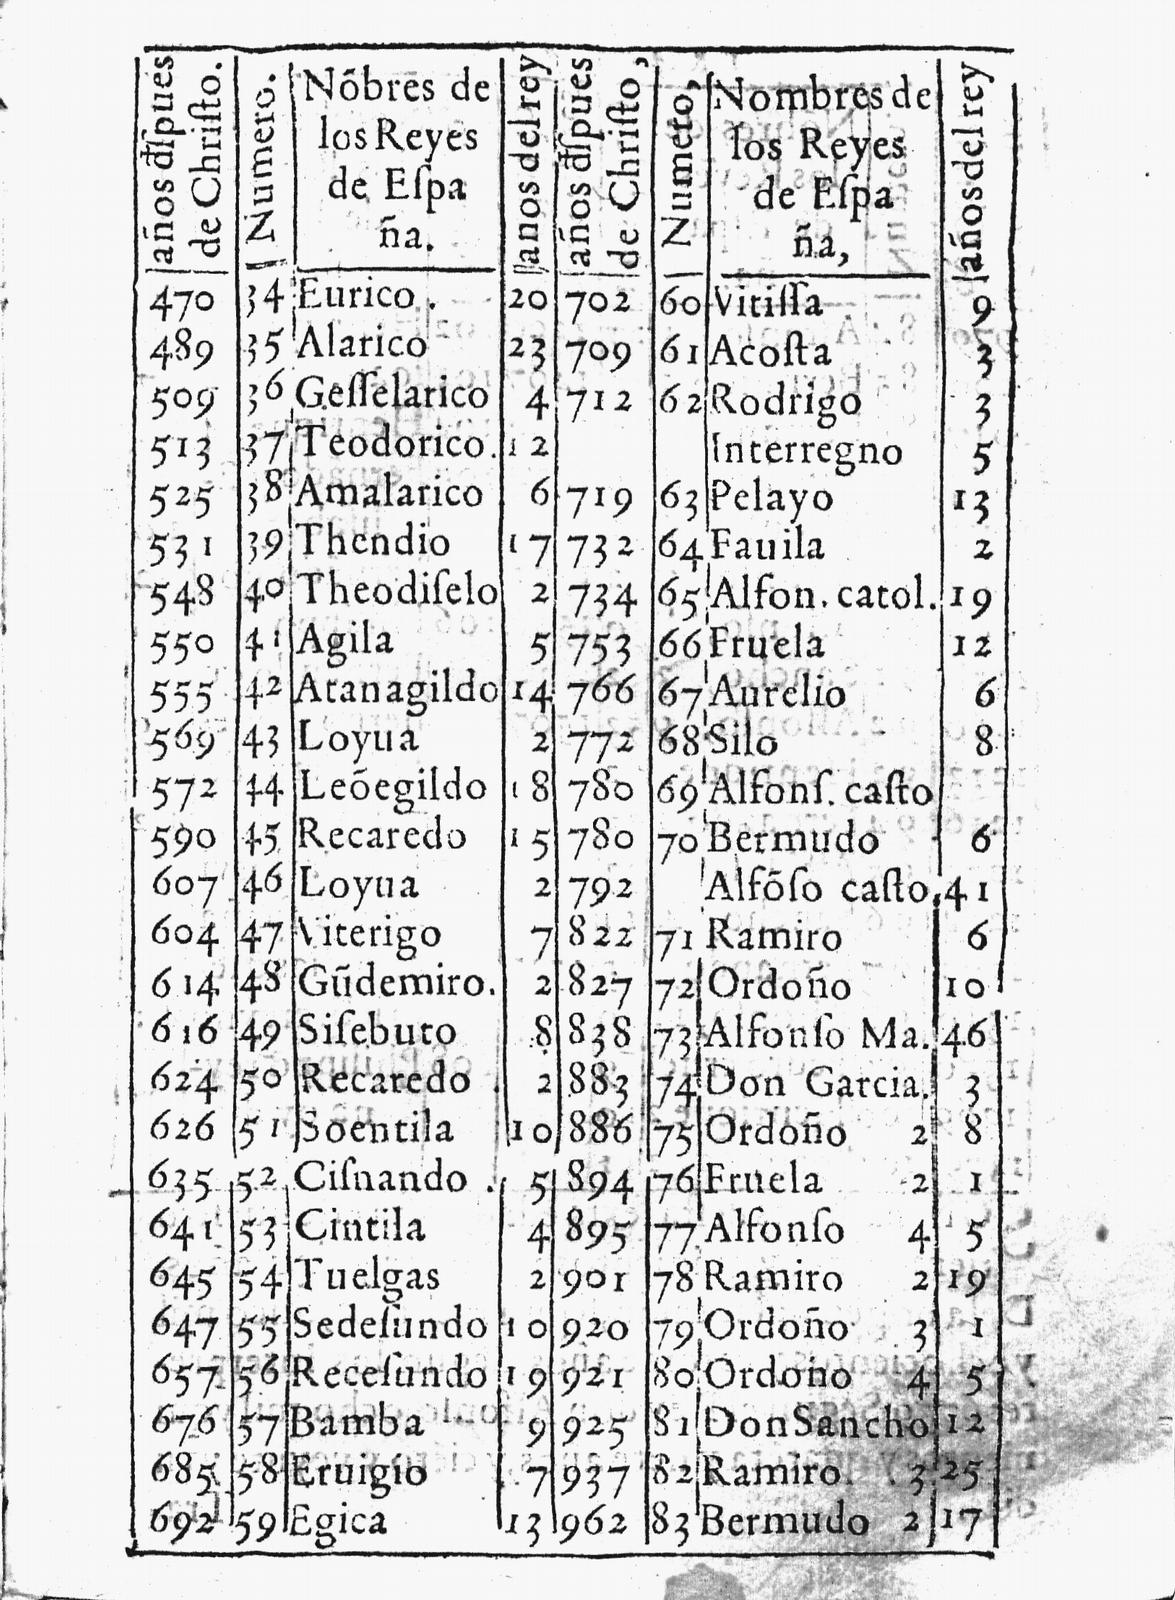 años d̄spues de Christo. | Numero. | Nõbres de los Reyes de Espa ña. | anos del rey | años d̄spues de Christo, | Numero, | Nombres de los Reyes de Espa ña, | años del rey
470 34 Eurico . 20 702 60 Vitiſſa 9
489 35 Alarico 23 709 61 Acoſta 3
509 36 Geſſelarico 4 712 62 Rodrigo 3
513 37 Teodorico. 12 Interregno 5
525 38 Amalarico 6 719 63 Pelayo 13
531 39 Thendio 17 732 64 Fauila 2
548 40 Theodiſelo 2 734 65 Alfon. catol. 19
550 41 Agila 5 753 66 Fruela 12
555 42 Atanagildo 14 766 67 Aurelio 6
569 43 Loyua 2 772 68 Silo 8
572 44 Leõegildo 18 780 69 Alfonſ. caſto
590 45 Recaredo 15 780 70 Bermudo 6
607 46 Loyua 2 792 Alfõſo caſto. 41
604 47 Viterigo 7 822 71 Ramiro 6
614 48 Gũdemiro. 2 827 72 Ordoño 10
616 49 Siſebuto 8 838 73 Alfonſo Ma. 46
624 50 Recaredo . 2 883 74 Don Garcia. 3
626 51 Soentila 10 886 75 Ordoño 2 8
635 52 Ciſnando . 5 894 76 Fruela 2 1
641 53 Cintila 4 895 77 Alfonſo 4 5
645 54 Tuelgas 2 901 78 Ramiro 2 19
647 55 Sedeſundo 10 920 79 Ordoño 3 1
657 56 Receſundo 19 921 80 Ordoño 4 5
676 57 Bamba 9 925 81 Don Sancho 12
685 58 Eruigio 7 937 82 Ramiro 3 25
692 59 Egica 13 962 83 Bermudo 2 17